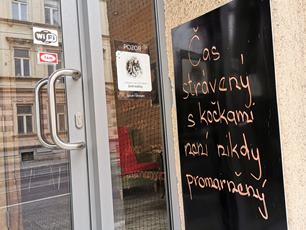 WiFi
POZOR
Čas
strávený
s kočkami
není nikdy
promarněný